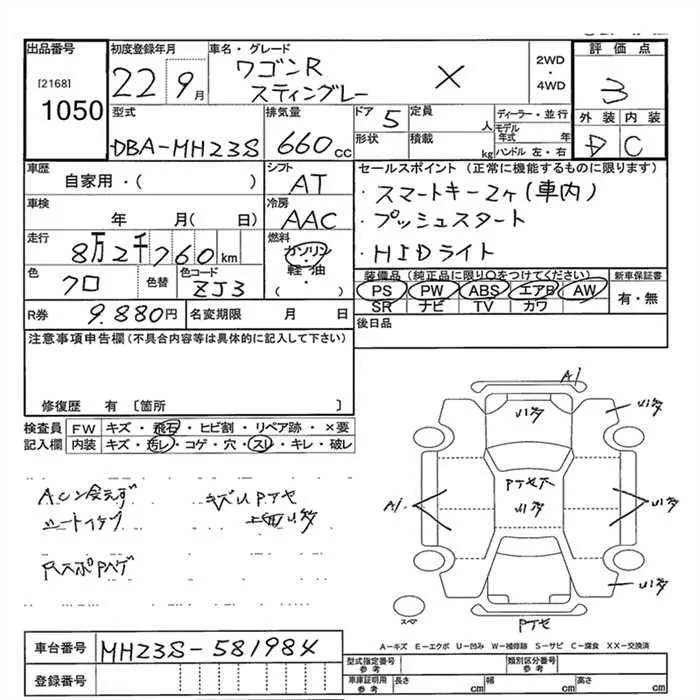 出品番号 初度登録年月 車名・グレード 2WD・4WD 評価点
[2168] 1050 22 9月 ワゴンR スティングレー X 3
型式 排気量 ドア 5 定員 人 ディーラー・並行 外装 内装
DBA-MH23S 660cc 形状 積載 kg モデル年式 年 ハンドル 左・右 D C
車歴 シフト セールスポイント (正常に機能するものに限ります)
自家用・( ) AT ・スマートキー2ヶ(車内)
車検 冷房 ・プッシュスタート
年 月( 日) AAC ・HIDライト
走行 燃料
8万2千760km ガソリン・軽・油・( )
色 色替 色コード 装備品 (純正品に限り〇をつけてください) 新車保証書
クロ ZJ3 PS PW ABS エアB AW 有・無
SR ナビ TV カワ
R券 9.880円 名変期限 月 日 後日品
注意事項申告欄(不具合内容等は具体的に記入して下さい)
修復歴 有 〔箇所 〕
検査員 FW キズ・飛石・ヒビ割・リペア跡・×要
記入欄 内装 キズ・汚レ・コゲ・穴・スレ・キレ・破レ
A1
U1多 U1多
A1 U1多 U1多
U1多
スペア
A−キズ E−エクボ U−凹み W−補修跡 S−サビ C−腐食 XX−交換済
車台番号 MH23S-581984
登録番号
型式指定番号 参考 類別区分番号 参考
車庫証明用 参考 長さ cm 幅 cm 高さ cm